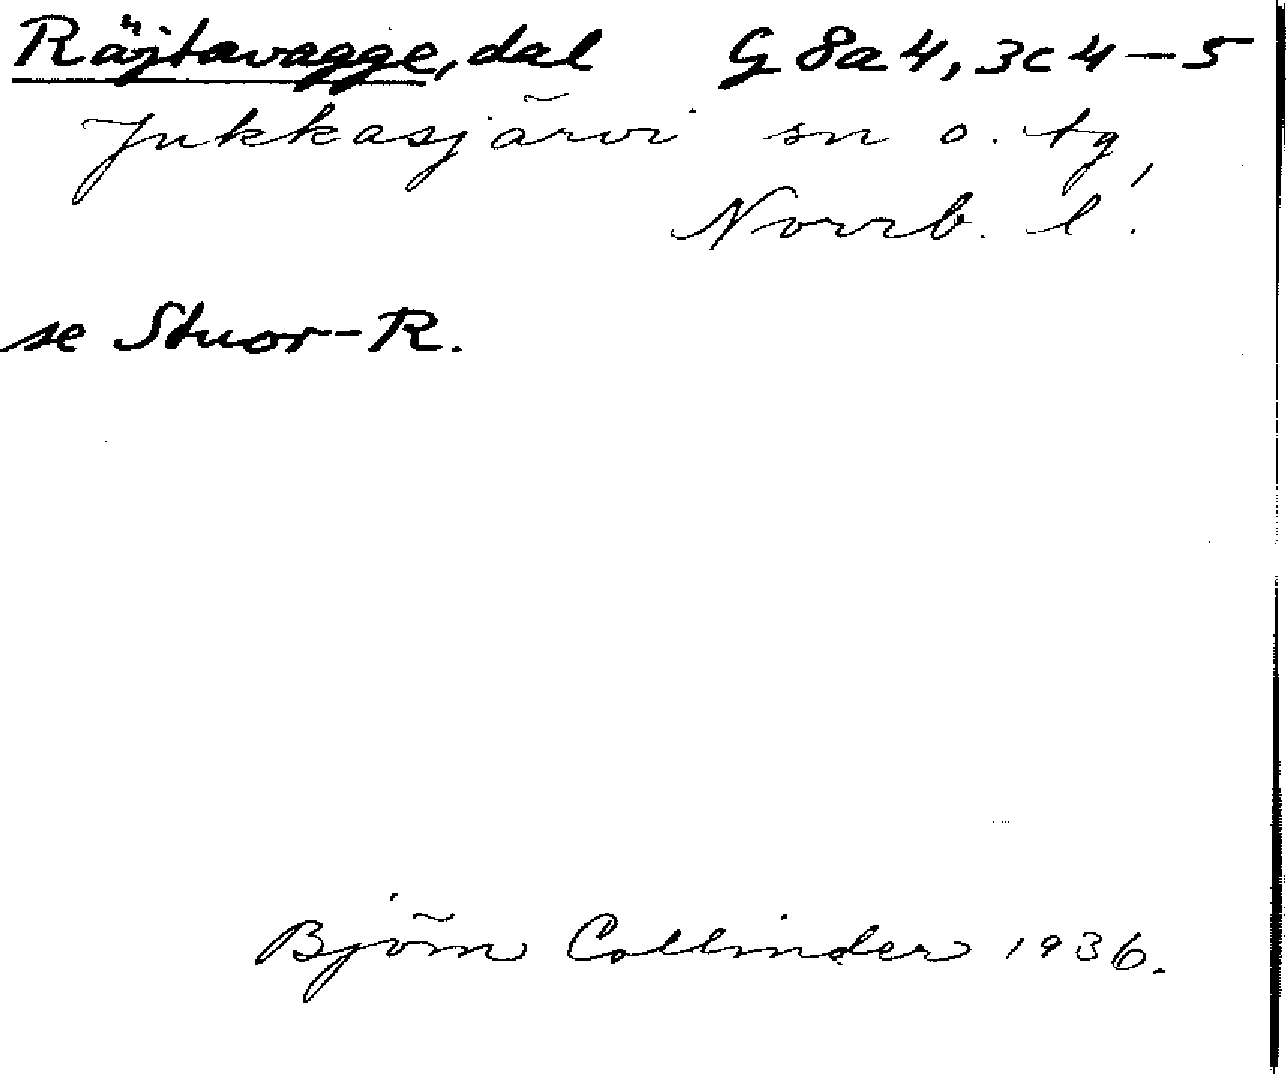 Räjtavagge, dal G 8a4, 3c4-5
Jukkasjärvi sn o. tg,
Norrb. l.
se Stuor-R.
Björn Collinder 1936.